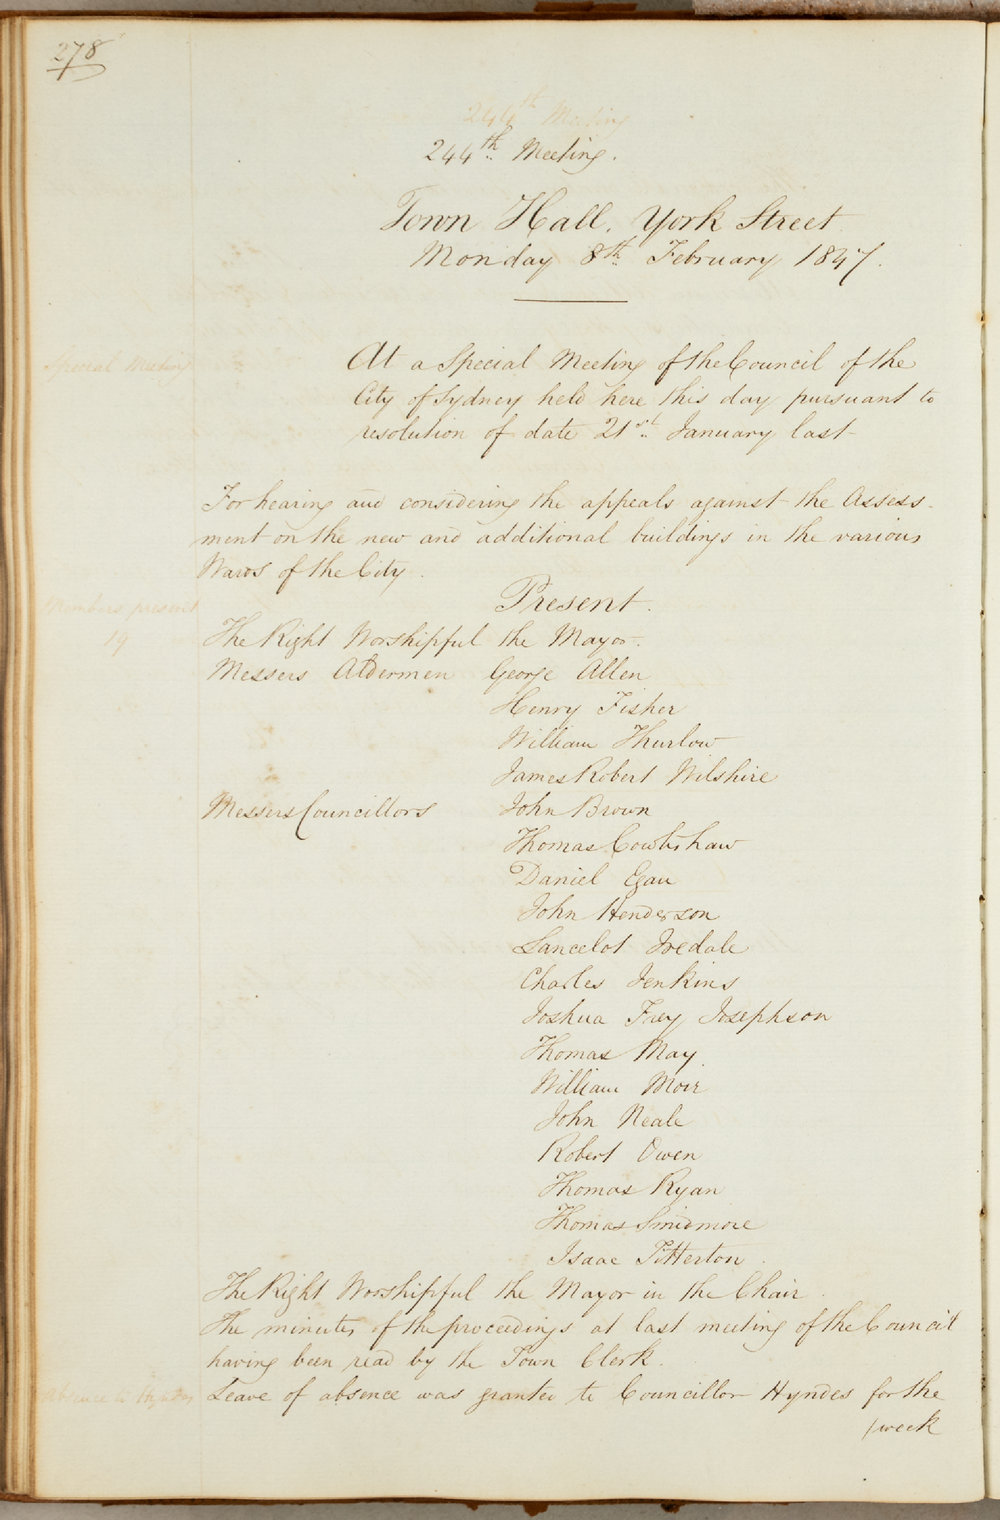 278
244th Meeting
244th Meeting.
Town Hall, York Street
Monday 8th February 1847.
Special Meeting
At a Special Meeting of the Council of the
City of Sydney held here this day pursuant to
resolution of date 21st January last
For hearing and considering the appeals against the Assess-
ment on the new and additional buildings in the various
Wards of the City.
Members present
19
Present.
The Right Worshipful the Mayor.
Messers Aldermen George Allen
Henry Fisher
William Thurlow
James Robert Wilshire
Messers Councillors John Brown
Thomas Cowlishaw
Daniel Egan
John Henderson
Lancelot Iredale
Charles Jenkins
Joshua Frey Josephson
Thomas May
William Moir
John Neale
Robert Owen
Thomas Ryan
Thomas Smidmore
Isaac Titterton.
The Right Worshipful the Mayor in the Chair.
The minutes of the proceedings at last meeting of the Council
having been read by the Town Clerk.
Absence to Hyndes
Leave of absence was granted to Councillor Hyndes for the
/week